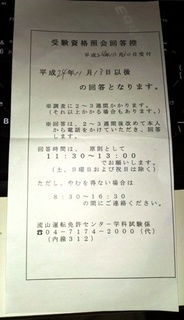 受験資格照会回答控
平成24年11月13日以後
の回答となります。
※調査に2~3週間かかります。
(それ以上かかる場合もあります。)
※回答は、2~3週間後改めて本人
から電話をかけていただき、回答しま
す。
回答時間は、原則として
11:30~13:00
でお願いします。
(土、日曜日および祝日は除く)
ただし、やむを得ない場合は
8:30~16:30
の間にご連絡ください。
流山運転免許センター学科試験係
☎04-7174-2000(代)
(内線312)